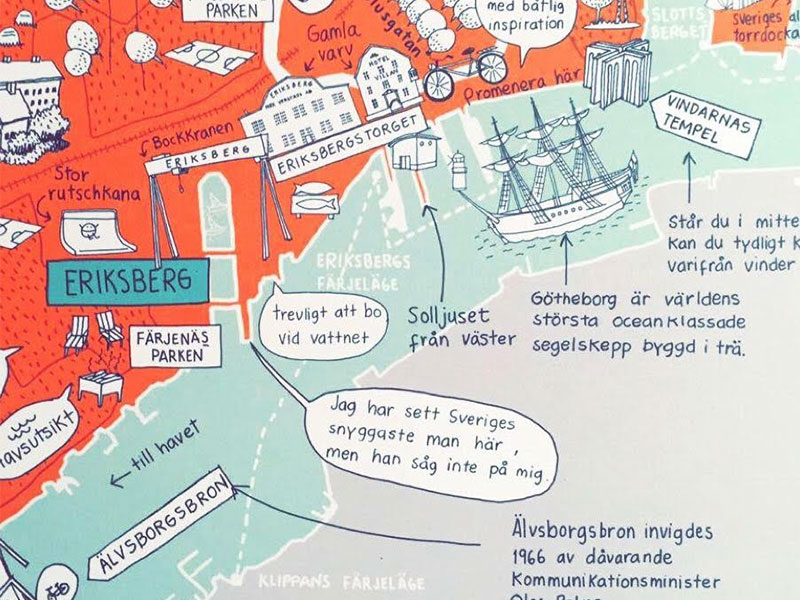 PARKEN
Gamla
varv
med båtlig
inspiration
SLOTTS
BERGET
Sveriges
torrdocka
Promenera här
HOTEL
ERIKSBERG
ERIKSBERGSTORGET
VINDARNAS
TEMPEL
Bockkranen
ERIKSBERG
Stor
rutschkana
ERIKSBERG
ERIKSBERGS
FÄRJELÄGE
Står du i
kan du tydligt
varifrån vinder
Götheborg är världens
största oceanklassade
segelskepp byggd i trä.
Solljuset
från väster
trevligt att bo
vid vattnet
FÄRJENÄS
PARKEN
Jag har sett Sveriges
snyggaste man här,
men han såg inte på mig.
till havet
ÄLVSBORGSBRON
Älvsborgsbron invigdes
1966 av dåvarande
Kommunikationsminister
KLIPPANS FÄRJELÄGE